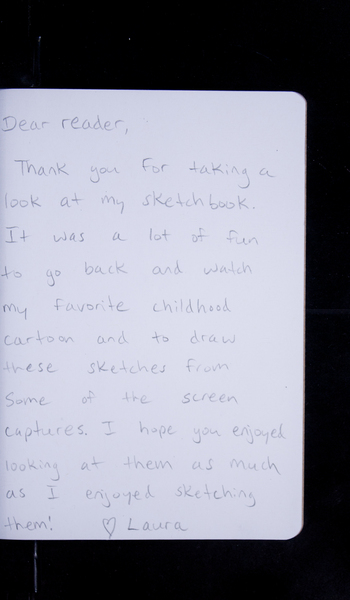 Dear reader,
Thank you for taking a
look at my sketchbook.
It was a lot of fun
to go back and watch
my favorite childhood
cartoon and to draw
these sketches from
Some of the screen
captures. I hope you enjoyed
looking at them as much
as I enjoyed sketching
them! ♡ Laura